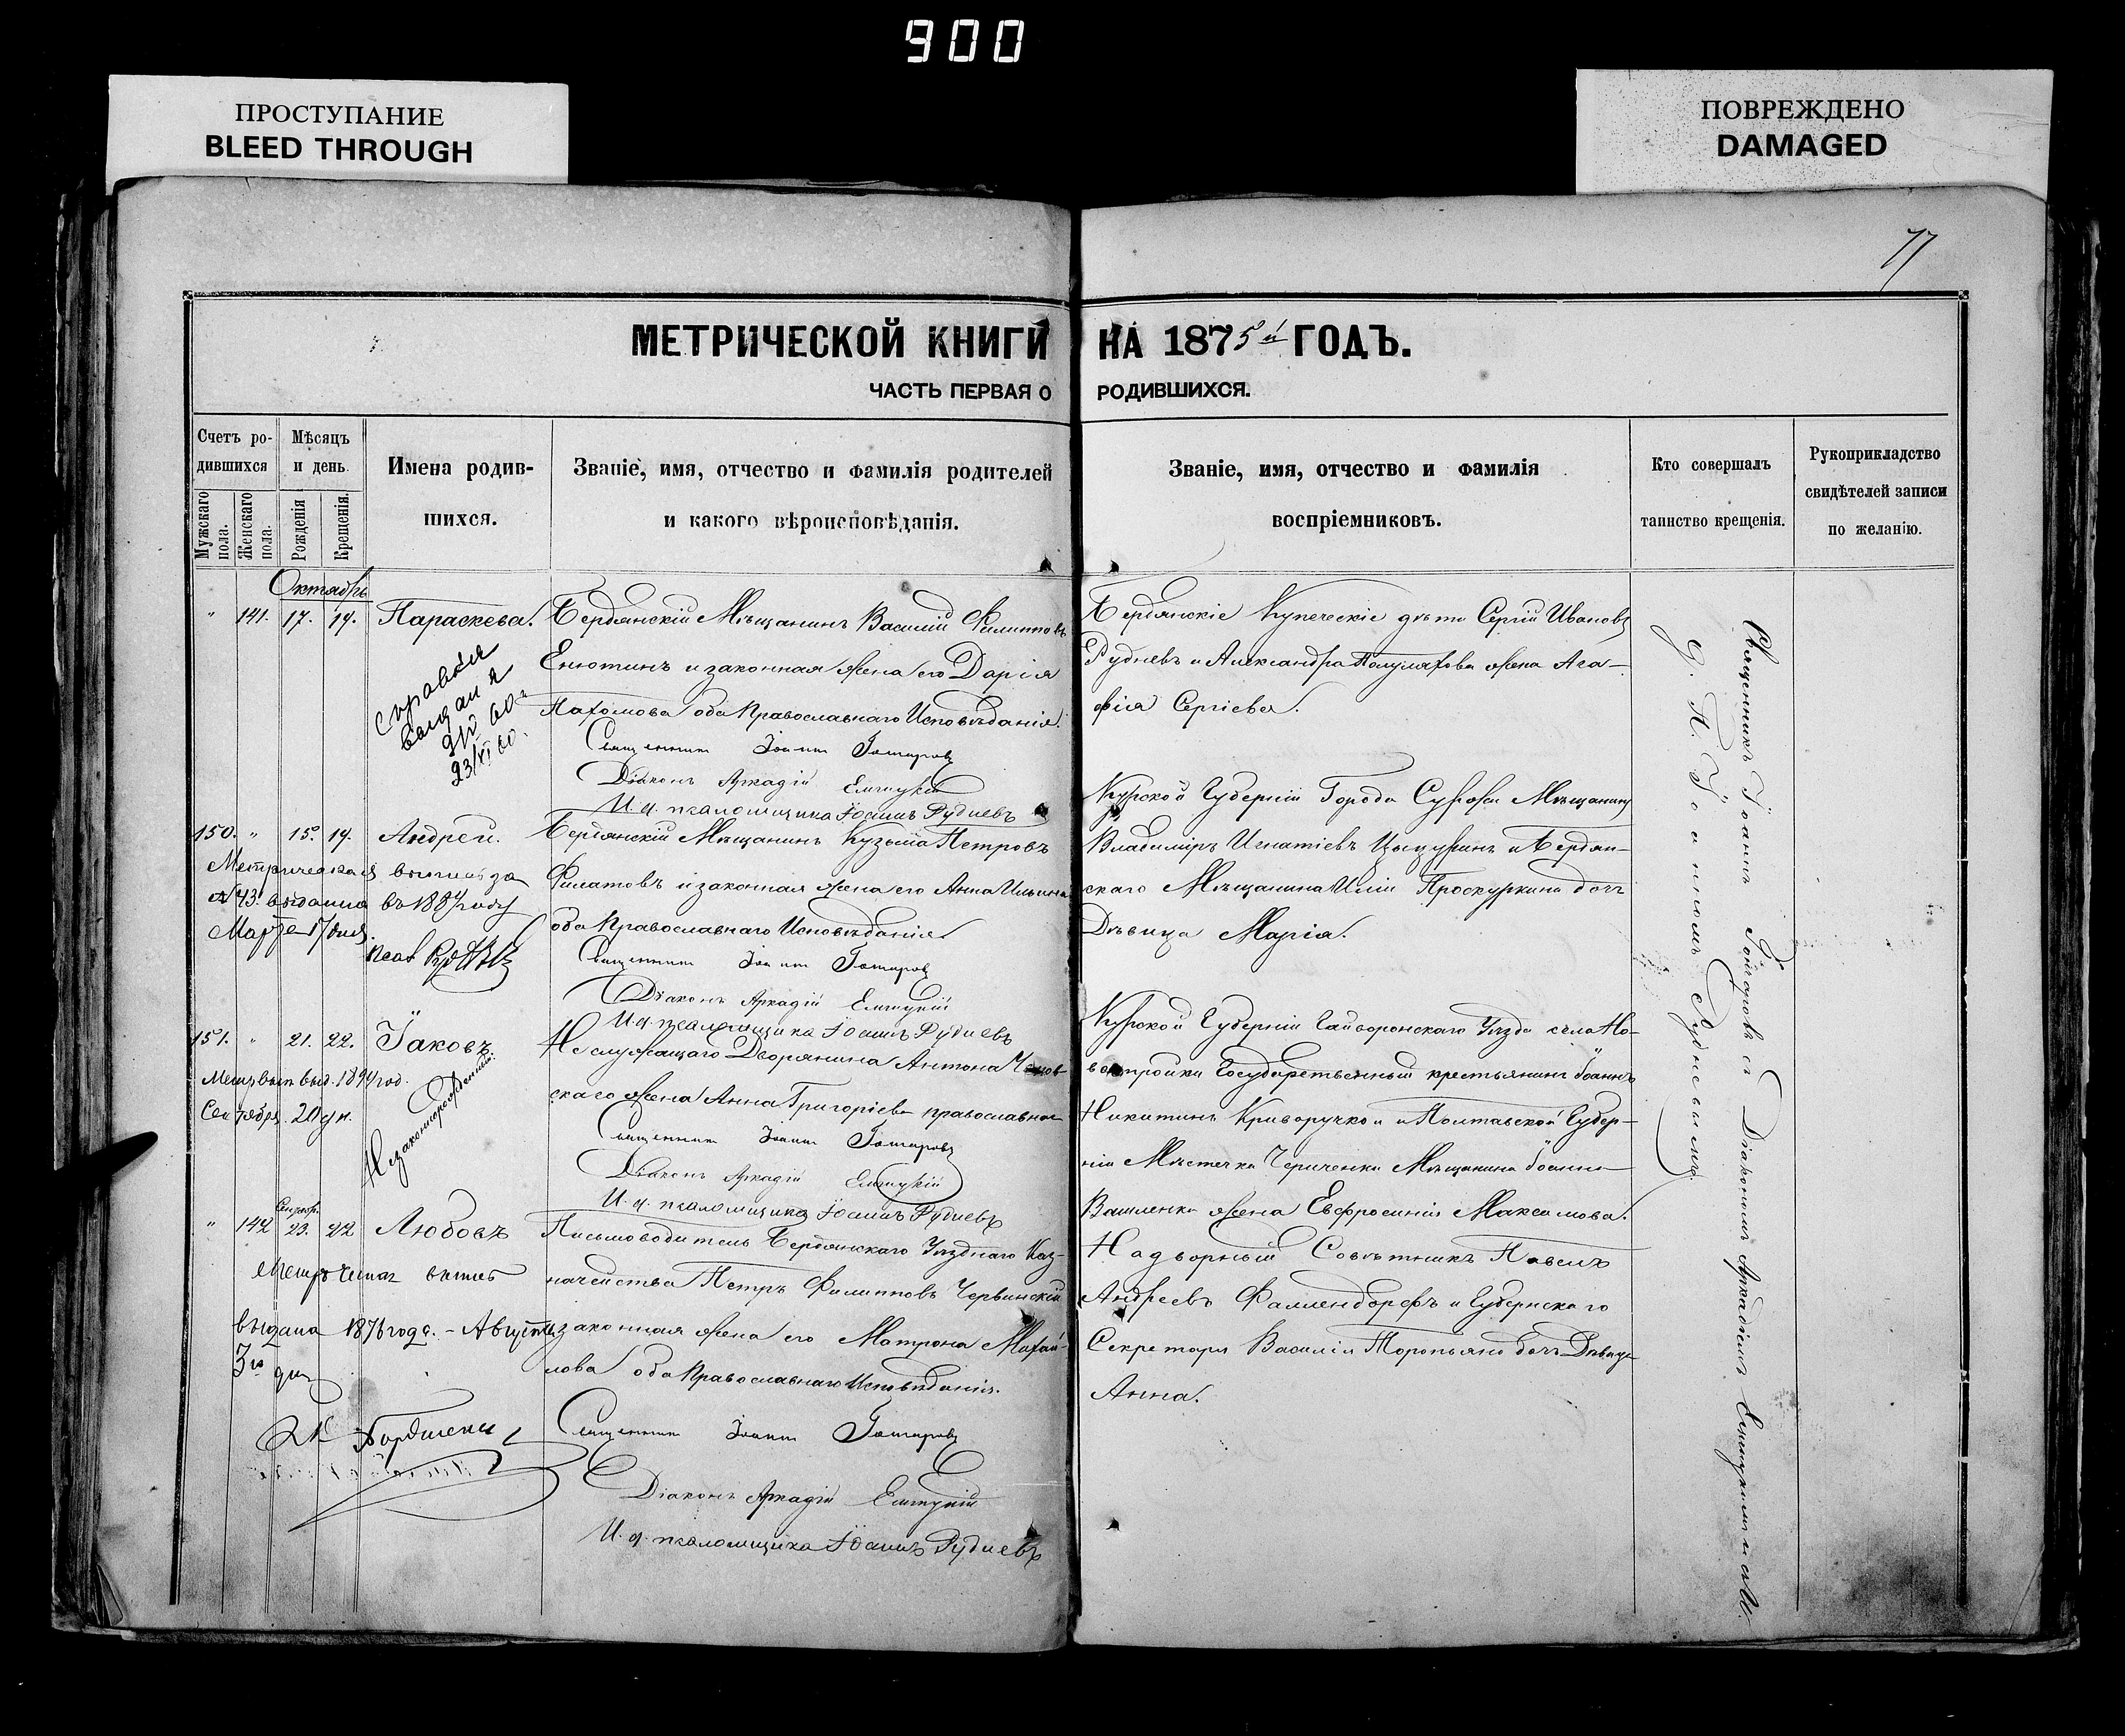 900
ПРОСТУПАНИЕ
BLEED THROUGH
ПОВРЕЖДЕНО
DAMAGED
77
МЕТРИЧЕСКОЙ КНИГИ НА 1875й ГОДЪ.
ЧАСТЬ ПЕРВАЯ О РОДИВШИХСЯ.
Счетъ ро-
дившихся
Мужскаго пола.
Женскаго пола.
Мѣсяцъ
и день.
Рожденія
Крещенія.
Имена родив-
шихся.
Званіе, имя, отчество и фамилія родителей
и какого вѣроисповѣданія.
Званіе, имя, отчество и фамилія
воспріемниковъ.
Кто совершалъ
таинство крещенія.
Рукоприкладство
свидѣтелей записи
по желанію.
Октябрь
" 141. 17. 19. Параскева.
Бердянскій Мѣщанинъ Василій Филипповъ
Енютинъ и законная жена его Дарія
Пахомова оба Православнаго Исповѣданія.
Священникъ Іоаннъ Гончаровъ
Діаконъ Аркадій
И. д. псаломщика Іоаннъ Рудневъ
Бердянскіе Купеческіе дѣти Сергій Ивановъ
Рудневъ и Александра жена Ага-
фія Сергіева.
23/XI 60.
150. " 15. 19. Андрей.
Бердянскій Мѣщанинъ Кузьма Петровъ
Филатовъ и законная жена его Анна Ильина
оба Православнаго Исповѣданія.
Священникъ Іоаннъ Гончаровъ
Діаконъ Аркадій
И. д. псаломщика Іоаннъ Рудневъ
Курской Губерніи Города Суджи Мѣщанинъ
Владиміръ Игнатіевъ и Бердян-
скаго Мѣщанина Иліи Проскурина дочь
Дѣвица Марія.
Метрическая выпись за
№ 43. выдана въ 1884 году
Марта 17 дня.
151. " 21. 22. Іаковъ.
Незаконнорожденный.
Неслужащаго Дворянина Антона
скаго жена Анна Григоріева православная
Священникъ Іоаннъ Гончаровъ
Діаконъ Аркадій
И. д. псаломщика Іоаннъ Рудневъ
Курской Губерніи Гайворонскаго Уѣзда села Но-
востройки Государственный крестьянинъ Іоаннъ
Никитинъ Криворучко и Полтавской Губер-
ніи Мѣстечка Мѣщанина Іоанна
Василенко жена Евфросинія Максимова.
Метр. вып. выд. 1894 год.
Сентября 20 дн.
" 142 23. 22 Любовь
Письмоводитель Бердянскаго Уѣзднаго Каз-
начейства Петръ Филипповъ Червинскій
и законная жена его Матрона Михай-
лова оба Православнаго Исповѣданія.
Священникъ Іоаннъ Гончаровъ
Діаконъ Аркадій
И. д. псаломщика Іоаннъ Рудневъ
Надворный Совѣтникъ Павелъ
Андреевъ Фаллендорфъ и Губернскаго
Секретаря Василія дочь Дѣвица
Анна.
выдана 1876 года. - Августа
3го дня
Священникъ Іоаннъ Гончаровъ съ Діакономъ Аркадіемъ и съ И.
д. п. Іоанномъ Рудневымъ.